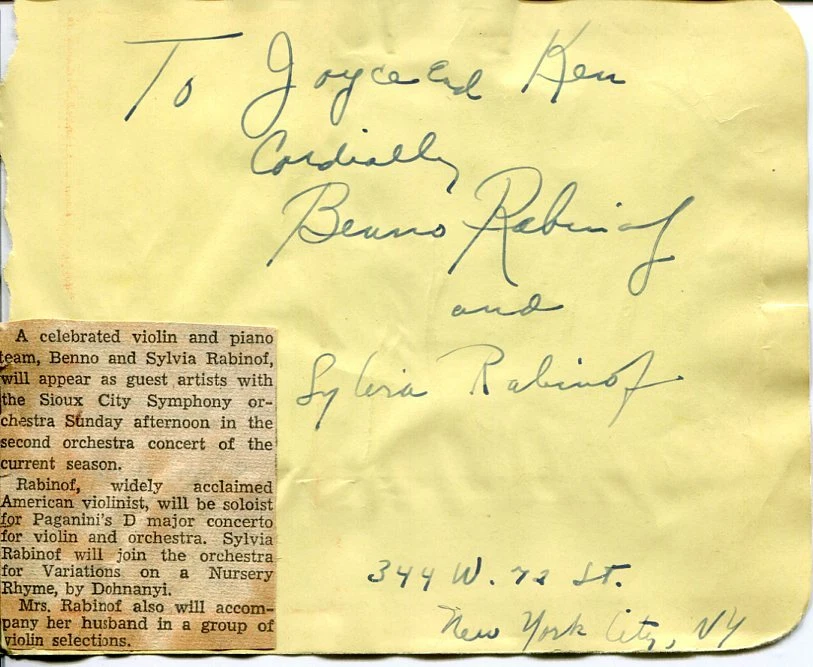 To Joyce and Ken
Cordially
Benno Rabinof
and
Sylvia Rabinof
A celebrated violin and piano
team, Benno and Sylvia Rabinof,
will appear as guest artists with
the Sioux City Symphony or-
chestra Sunday afternoon in the
second orchestra concert of the
current season.
Rabinof, widely acclaimed
American violinist, will be soloist
for Paganini's D major concerto
for violin and orchestra. Sylvia
Rabinof will join the orchestra
for Variations on a Nursery
Rhyme, by Dohnanyi.
Mrs. Rabinof also will accom-
pany her husband in a group of
violin selections.
344 W. 72 St.
New York City, NY